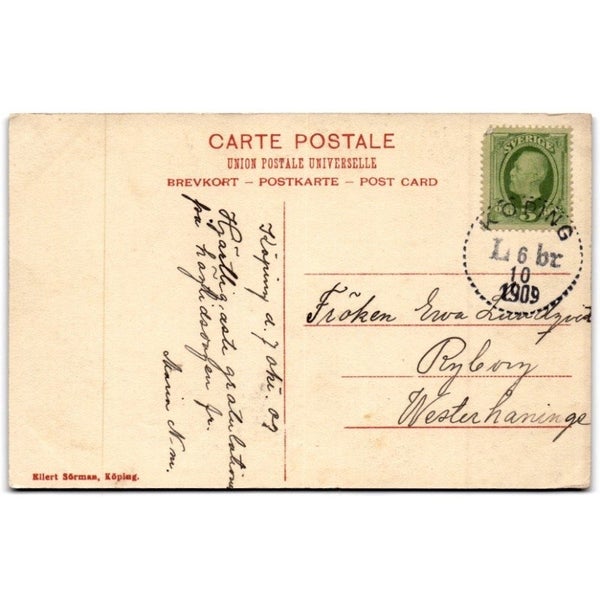 CARTE POSTALE
UNION POSTALE UNIVERSELLE
BREVKORT – POSTKARTE – POST CARD
SVERIGE
KÖPING
L 6 br
10
1909
Köping d. 7 okt. 09
Hjärtligaste gratulation
på högtidsdagen fr.
Maria N-m.
Fröken Ewa Lundqvist
Westerhaninge
Eilert Sörman, Köping.